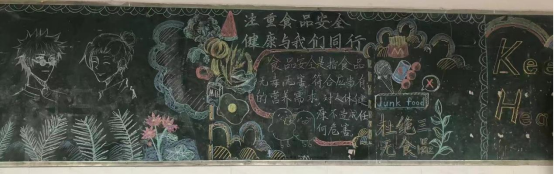 注重食品安全
健康与我们同行
食品安全是指食品
无毒、无害,符合应当有
的营养要求,对人体健
康不造成任
何危害
Junk food
杜绝三
无食品
Kee
Hea